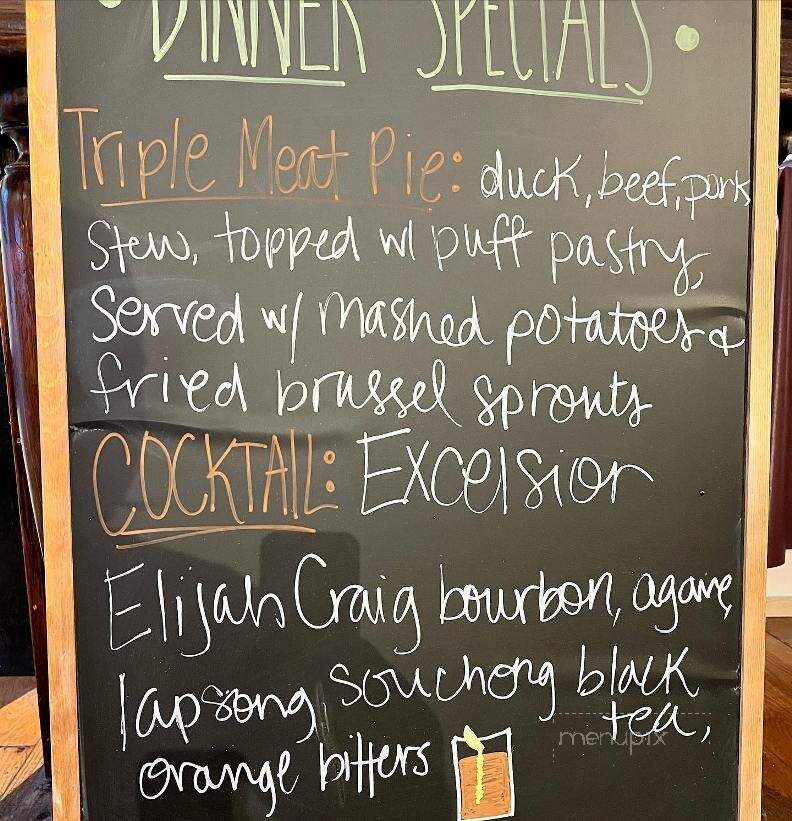 DINNER SPECIALS
Triple Meat Pie: duck, beef, pork
Stew, topped w/ puff pastry,
Served w/ mashed potatoes &
fried brussel sprouts
COCKTAIL: Excelsior
Elijah Craig bourbon, agave,
lapsong souchong black
tea,
orange bitters
menupix